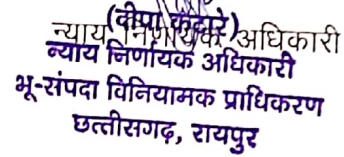 (दीपा कटारे)
न्याय निर्णायक अधिकारी
न्याय निर्णायक अधिकारी
भू-संपदा विनियामक प्राधिकरण
छत्तीसगढ़, रायपुर